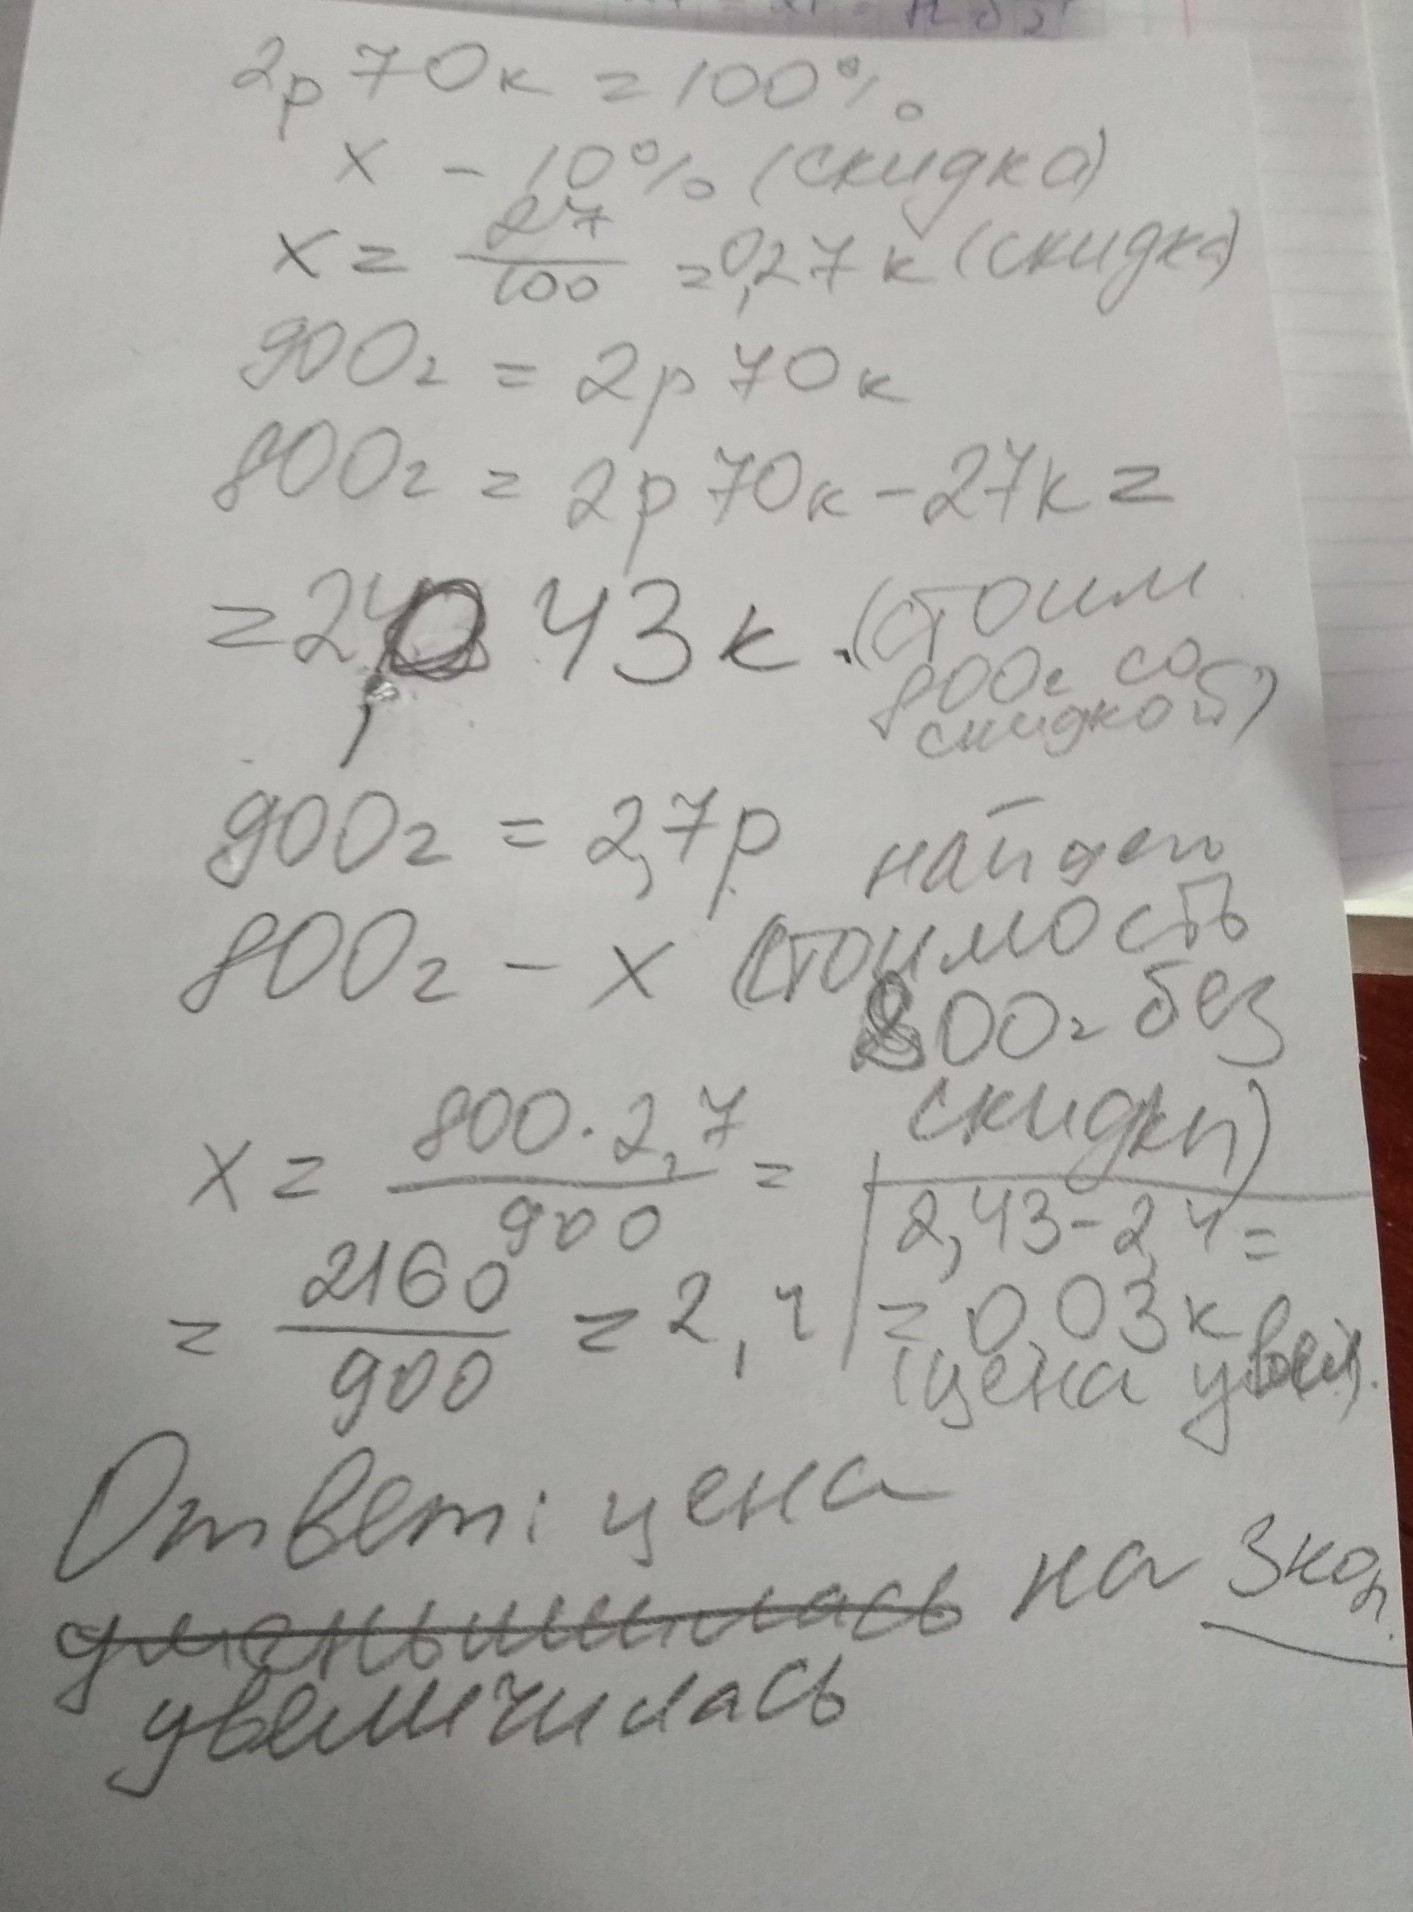 2р 70к = 100%
х - 10% (скидка)
х = 27/100 = 0,27 к (скидка)
900г = 2р 70к
800г = 2р 70к - 27к =
= 2, 43 к. (стоим
800г со
скидкой)
900г = 2,7р
800г - х (стоимость
найдем
800г без
скидки)
х = 800 · 2,7 / 900 =
= 2160/900 = 2,4
2,43 - 2,4 =
= 0,03 к
(цена увел).
Ответ: цена
уменьшилась на 3коп.
увеличилась